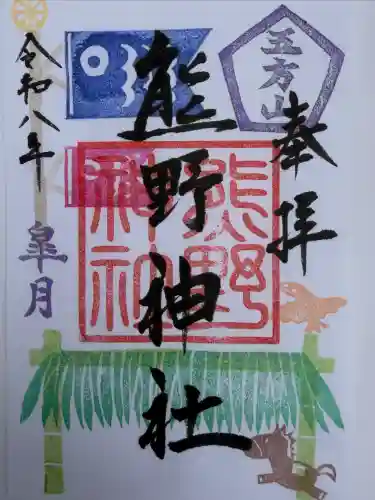 五方山
奉拝
熊野神社
熊野神社
令和八年
皐月